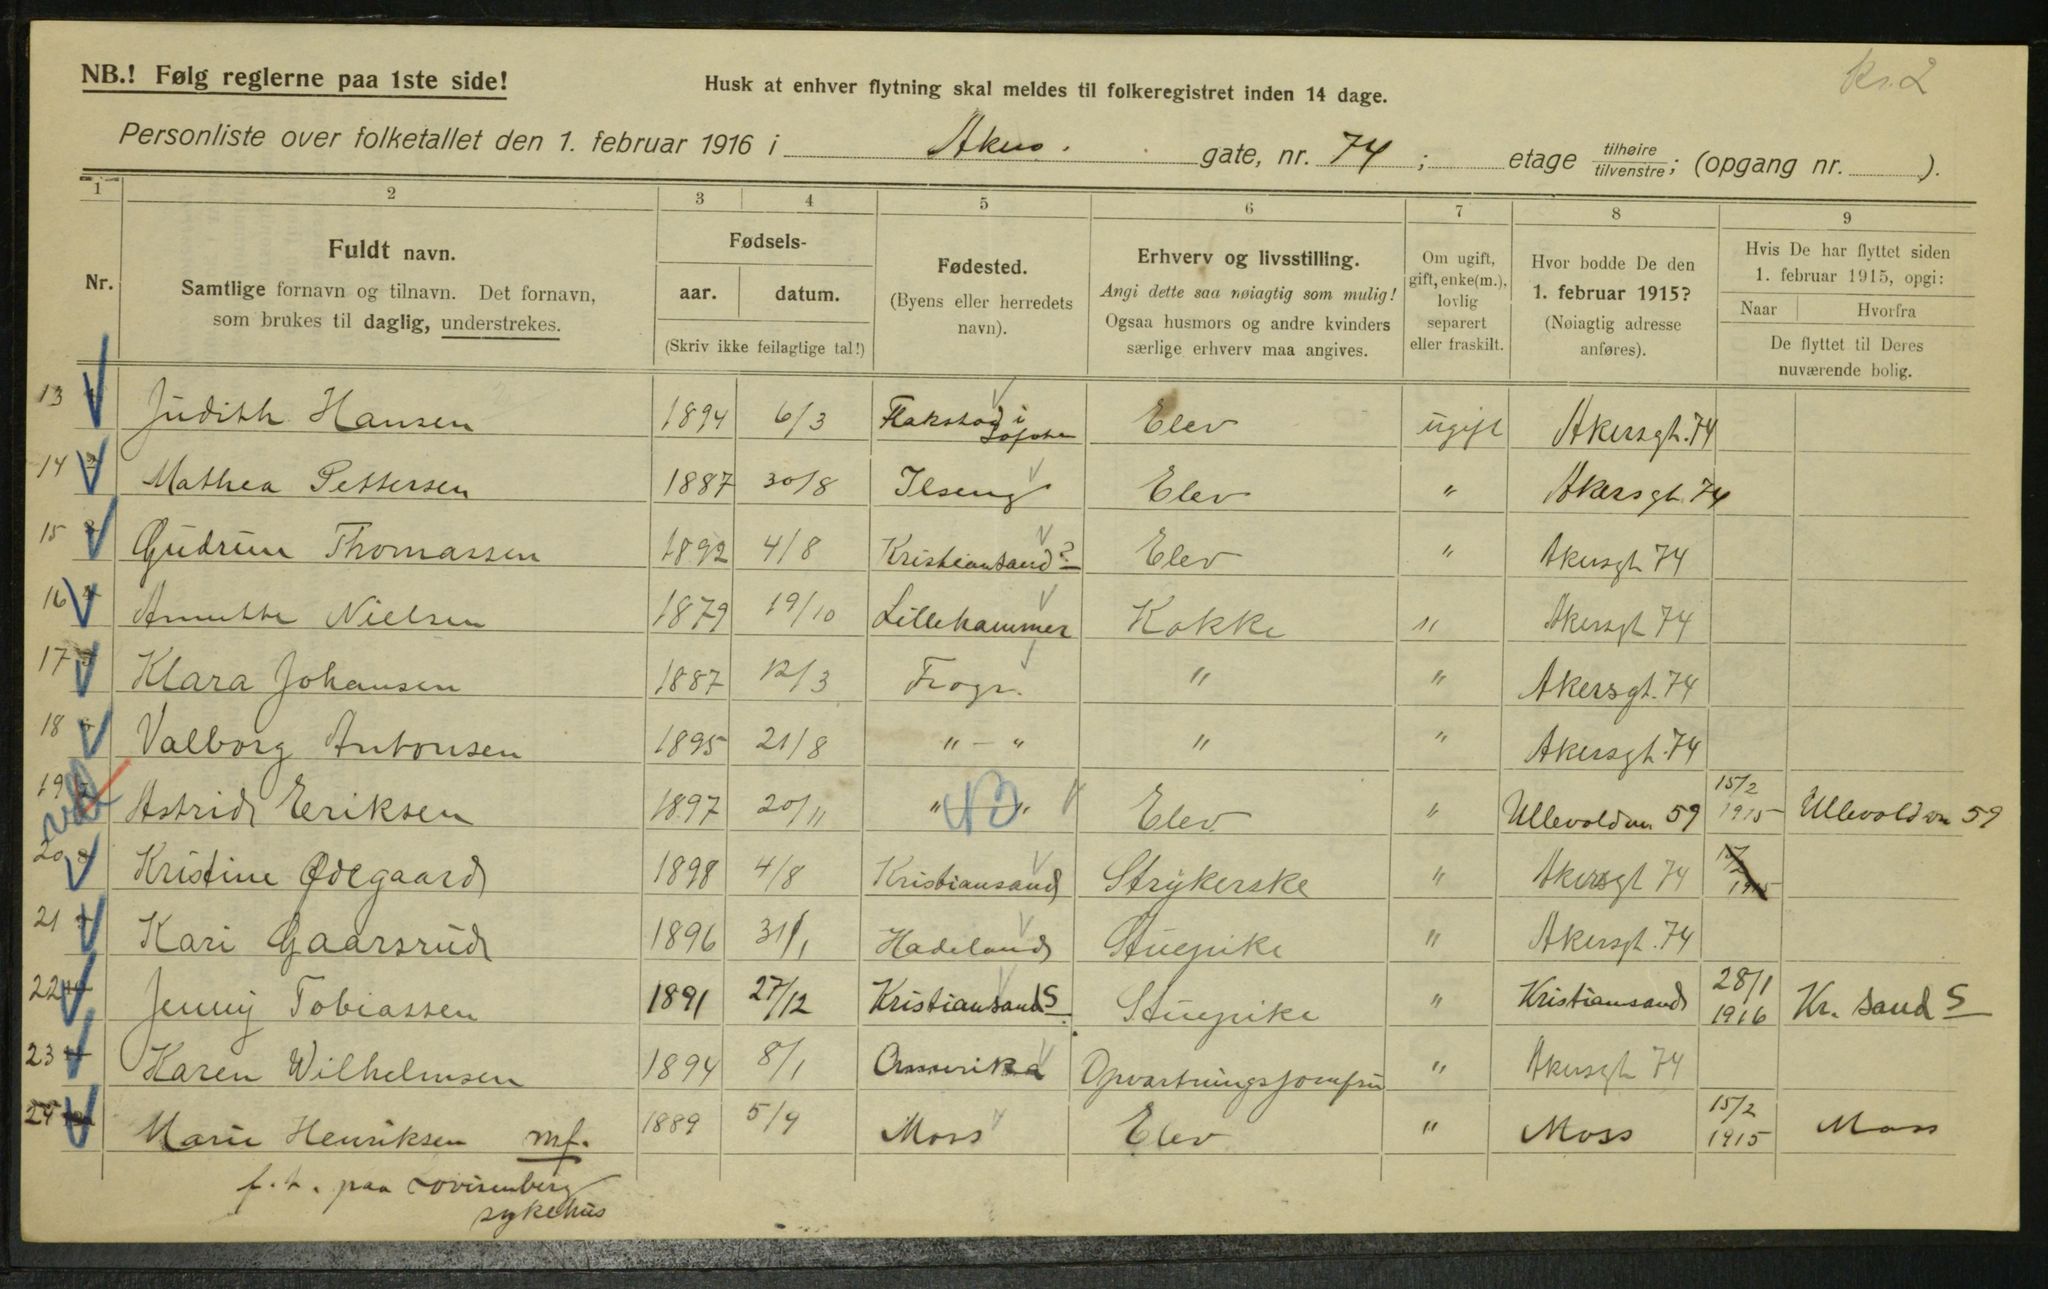 NB.! Følg reglerne paa 1ste side!
Husk at enhver flytning skal meldes til folkeregistret inden 14 dage.
Kr. 2
Personliste over folketallet den 1. februar 1916 i Akers gate, nr. 74; etage tilhøire tilvenstre; (opgang nr. ).
1 2 3 4 5 6 7 8 9
Nr.
Fuldt navn.
Samtlige fornavn og tilnavn. Det fornavn,
som brukes til daglig, understrekes.
Fødsels-
aar. datum.
(Skriv ikke feilagtige tal!)
Fødested.
(Byens eller herredets
navn).
Erhverv og livsstilling.
Angi dette saa nøiagtig som mulig!
Ogsaa husmors og andre kvinders
særlige erhverv maa angives.
Om ugift,
gift, enke(m.),
lovlig
separert
eller fraskilt.
Hvor bodde De den
1. februar 1915?
(Nøiagtig adresse
anføres).
Hvis De har flyttet siden
1. februar 1915, opgi:
Naar Hvorfra
De flyttet til Deres
nuværende bolig.
13 Judith Hansen 1894 6/3 Flakstad i Lofoten Elev ugift Akersgt. 74
14 Mathea Pettersen 1887 30/8 Ilseng Elev " Akersgt. 74
15 Gudrun Thomassen 1892 4/8 Kristiansand? Elev " Akersgt 74
16 Annette Nielsen 1879 19/10 Lillehammer Kokke " Akersgt 74
17 Klara Johansen 1887 12/3 Frogn. " " Akersgt. 74
18 Valborg Antonsen 1895 21/8 " - " " " Akersgt. 74
19 Astrid Eriksen 1897 20/11 " " Elev " Ullevoldsvn. 59 15/2 1915 Ullevoldsvn 59
20 Kristine Ødegaard 1898 4/8 Kristiansand Strykerske " Akersgt 74 15/2 1915
21 Kari Gaarsrud 1896 31/1 Hadeland Stuepike " Akersgt. 74
22 Jenny Tobiassen 1891 27/12 Kristiansand S Stuepike " Kristiansand 28/1 1916 Kr. sand S
23 Karen Wilhelmsen 1894 8/1 Amerika Opvartningsjomfru " Akersgt 74
24 Marie Henriksen mf. 1889 5/9 Moss Elev " Moss 15/2 1915 Moss
f. t. paa Lovisenberg
sykehus